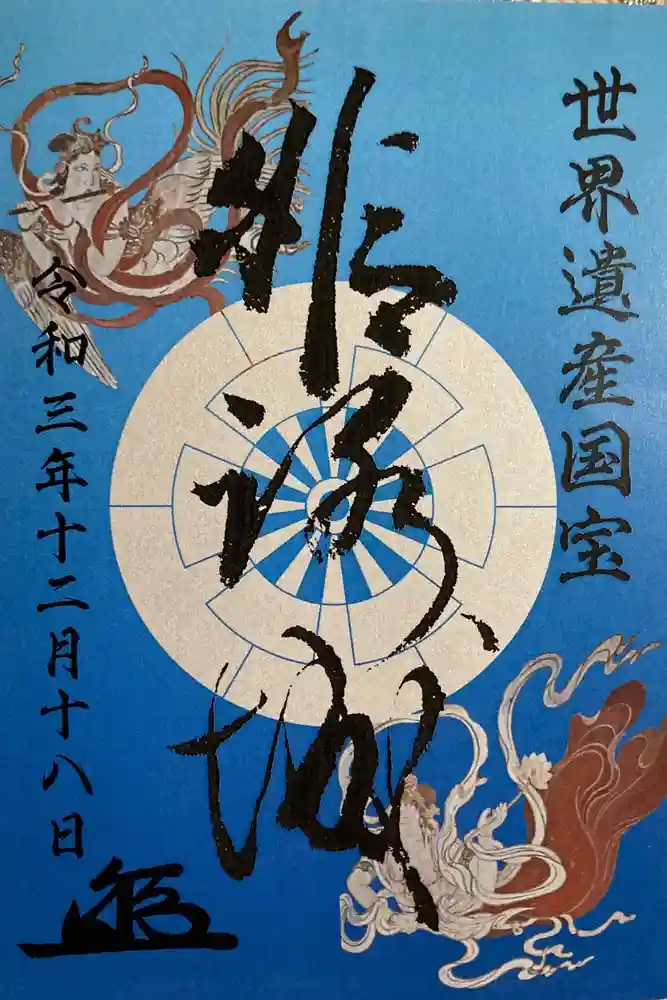 世界遺産国宝
姫路城
令和三年十二月十八日